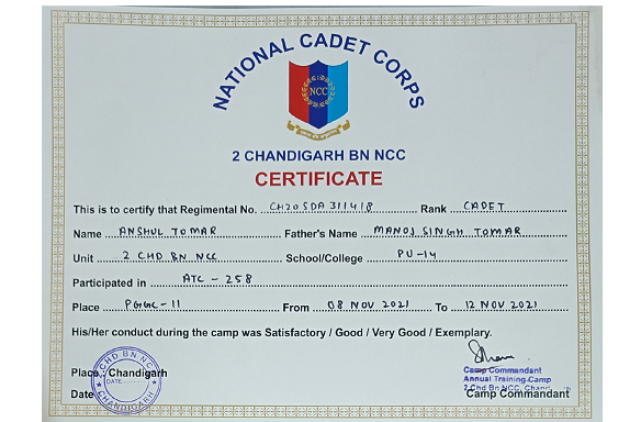 NATIONAL CADET CORPS
NCC
2 CHANDIGARH BN NCC
CERTIFICATE
This is to certify that Regimental No. CH20SDA311418 Rank CADET
Name ANSHUL TOMAR Father's Name MANOJ SINGH TOMAR
Unit 2 CHD BN NCC School/College PU-14
Participated in ATC - 258
Place PGGC-11 From 08 NOV 2021 To 12 NOV 2021
His/Her conduct during the camp was Satisfactory / Good / Very Good / Exemplary.
Place, Chandigarh
Date
CHD BN NCC
DATE
CHANDIGARH
Camp Commandant
Annual Training Camp
2 Chd Bn NCC,
Camp Commandant